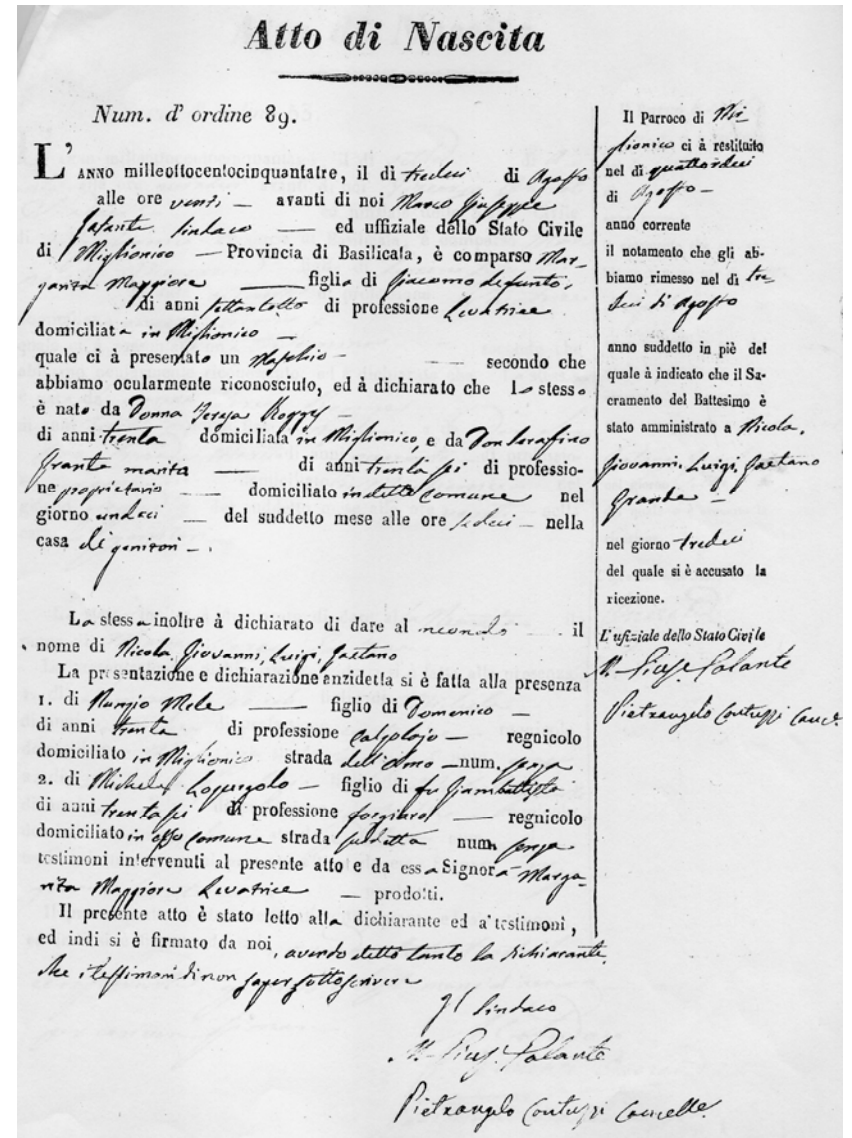 Atto di Nascita
Num. d' ordine 89.
L'ANNO milleottocentocinquantatre, il di tredici di Agosto
alle ore venti — avanti di noi Marco Giuseppe
Galante Sindaco — ed uffiziale dello Stato Civile
di Miglionico — Provincia di Basilicata, è comparso Mar-
garita Maggiore — figlia di Giacomo defunto,
di anni settantotto di professione Levatrice
domiciliata in Miglionico —
quale ci à presentato un Maschio — secondo che
abbiamo ocularmente riconosciuto, ed à dichiarato che lo stesso
è nato da Donna Teresa
di anni trenta domiciliata in Miglionico, e da Don Serafino
Grande marito — di anni trentasei di professio-
ne proprietario — domiciliato in detto comune nel
giorno undeci — del suddetto mese alle ore sedeci — nella
casa di genitori —.
La stessa inoltre à dichiarato di dare al neonato — il
nome di Nicola, Giovanni, Luigi, Gaetano
La presentazione e dichiarazione anzidetta si è fatta alla presenza
1. di Nunzio Mele — figlio di Domenico —
di anni trenta di professione calzolajo — regnicolo
domiciliato in Miglionico strada dell'olmo — num. senza
2. di Michele — figlio di fu Giambattista
di anni trentasei di professione forgiaro — regnicolo
domiciliato in esso comune strada suddetta num. senza
testimoni intervenuti al presente atto e da essa Signora Marga-
rita Maggiore Levatrice — prodotti.
Il presente atto è stato letto alla dichiarante ed a' testimoni,
ed indi si è firmato da noi, avendo detto tanto la dichiarante,
che i testimoni di non saper sottoscrivere
Il Sindaco
M. Gius. Galante
Pietrangelo Contuzzi Cancelle.
Il Parroco di Mi-
glionico ci à restituito
nel dì quattordeci
di Agosto —
anno corrente
il notamento che gli ab-
biamo rimesso nel dì tre-
deci di Agosto
anno suddetto in piè del
quale à indicato che il Sa-
cramento del Battesimo è
stato amministrato a Nicola,
Giovanni, Luigi, Gaetano
Grande —
nel giorno tredeci
del quale si è accusato la
ricezione.
L'ufiziale dello Stato Civile
M. Gius. Galante
Pietrangelo Contuzzi Canc.